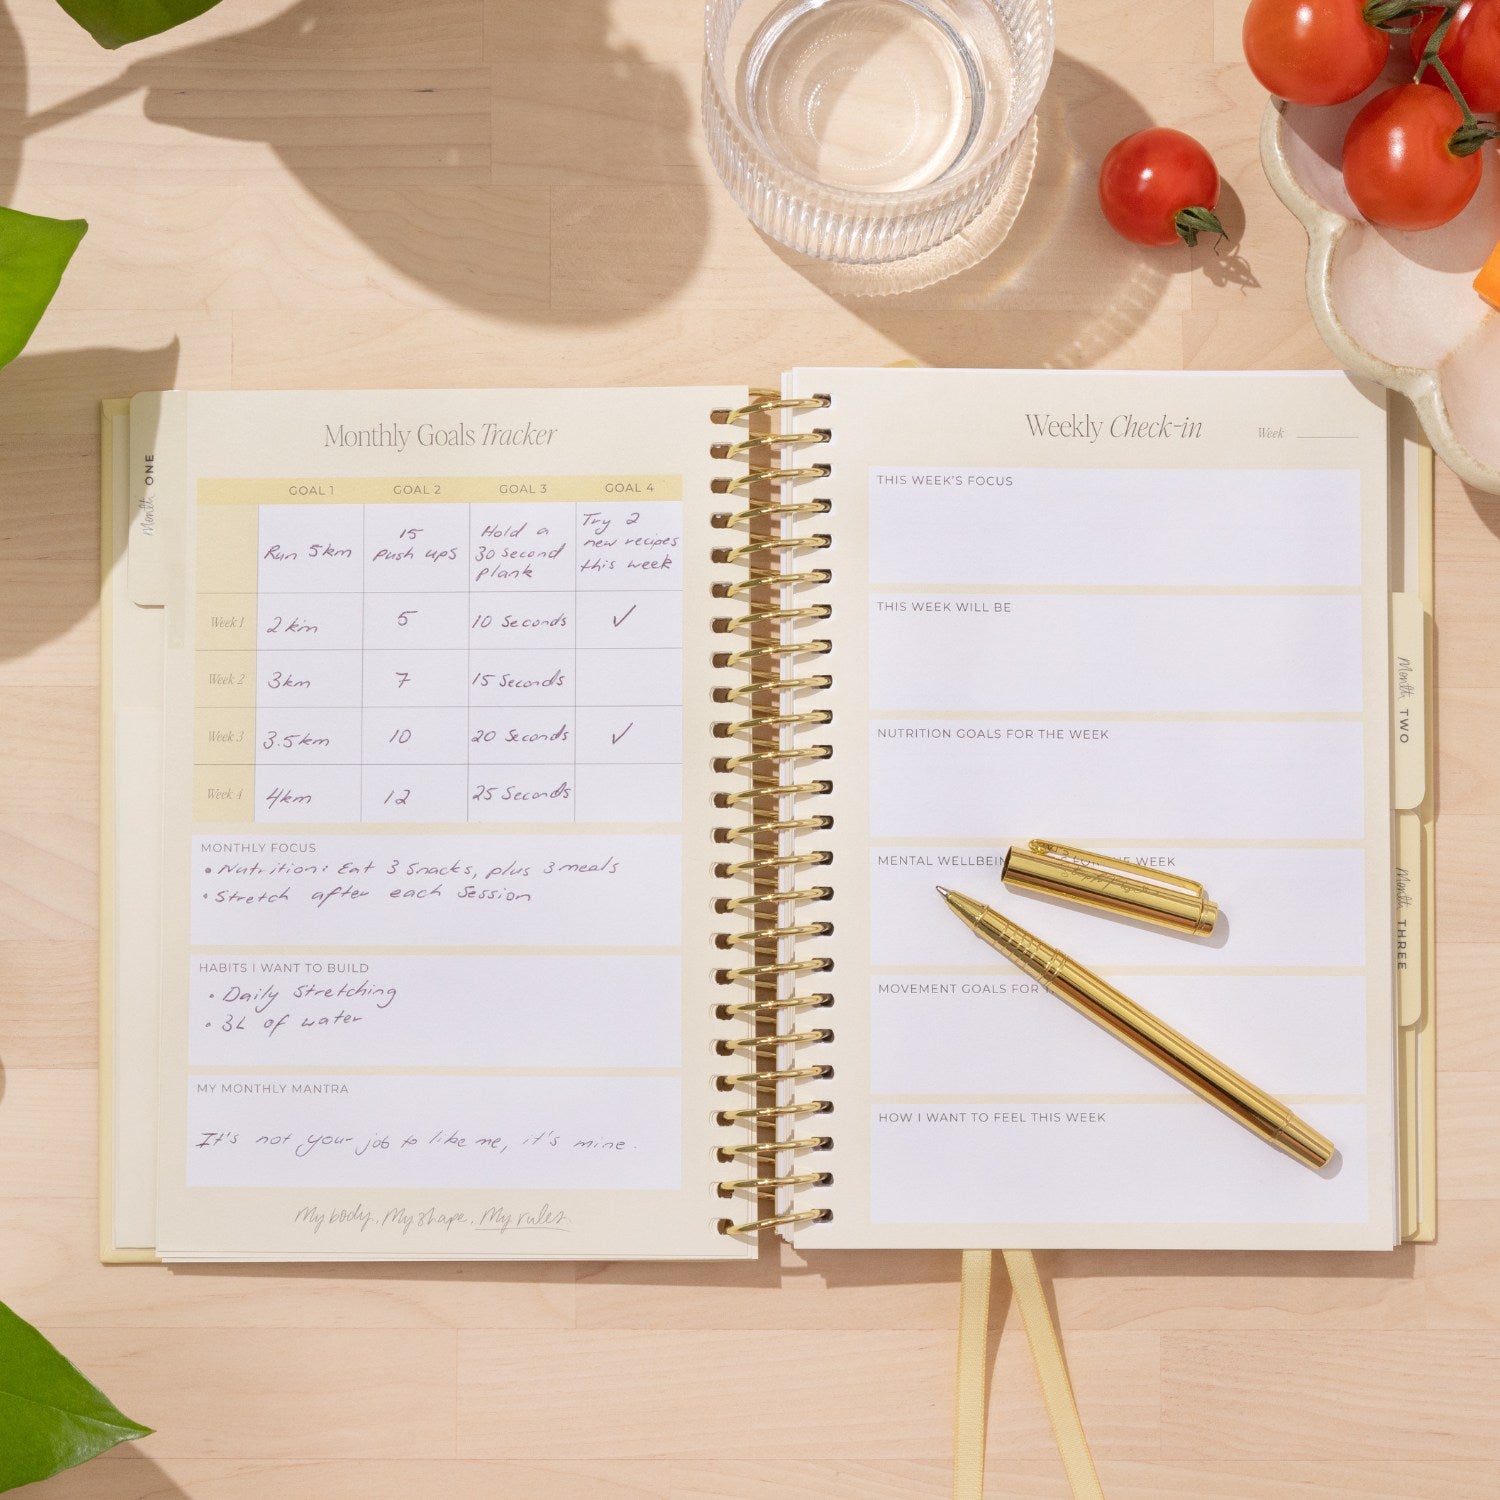 Monthly Goals Tracker
GOAL 1 GOAL 2 GOAL 3 GOAL 4
Run 5km
15
push ups
Hold a
30 second
plank
Try 2
new recipes
this week
Week 1 2km 5 10 Seconds ✓
Week 2 3km 7 15 Seconds
Week 3 3.5km 10 20 Seconds ✓
Week 4 4km 12 25 Seconds
MONTHLY FOCUS
• Nutrition: Eat 3 Snacks, plus 3 meals
• Stretch after each Session
HABITS I WANT TO BUILD
• Daily Stretching
• 3L of water
MY MONTHLY MANTRA
It's not your job to like me, it's mine.
My body. My shape. My rules.
Month ONE
Weekly Check-in
Week
THIS WEEK'S FOCUS
THIS WEEK WILL BE
NUTRITION GOALS FOR THE WEEK
MENTAL WELLBEIN
WEEK
MOVEMENT GOALS FOR
HOW I WANT TO FEEL THIS WEEK
Month TWO
Month THREE